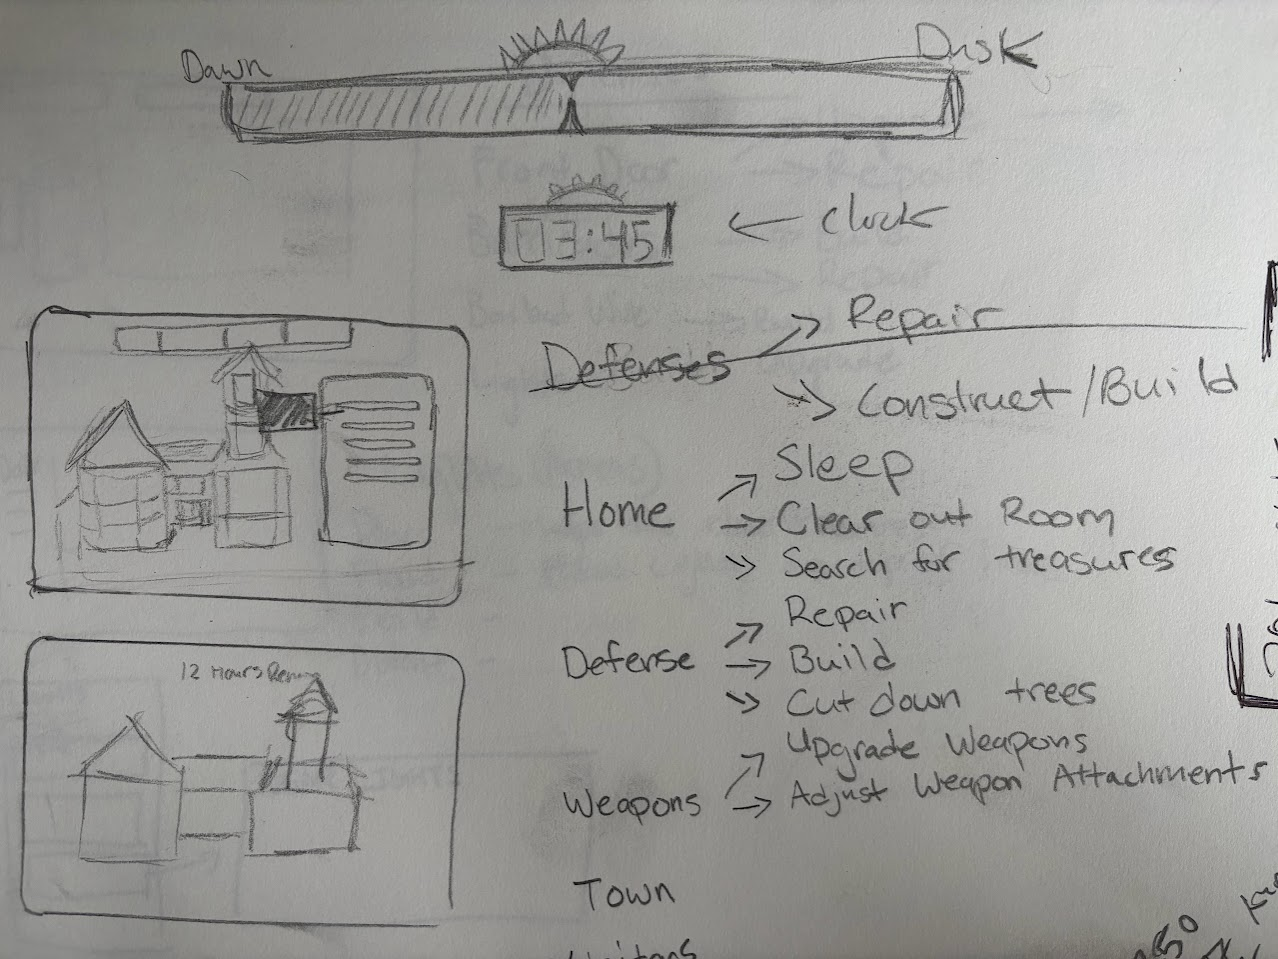 Dawn
Dusk
03:45
← Clock
Defenses → Repair
→ Construct/Build
Home → Sleep
→ Clear out Room
→ Search for treasures
Defense → Repair
→ Build
→ Cut down trees
Weapons → Upgrade Weapons
→ Adjust Weapon Attachments
12 Hours
Town